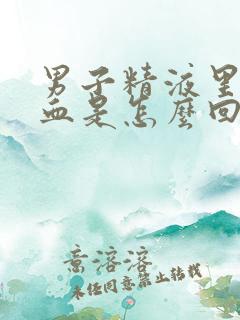 男子精液里
血是怎麼回
意溶溶
未经同意禁止转载